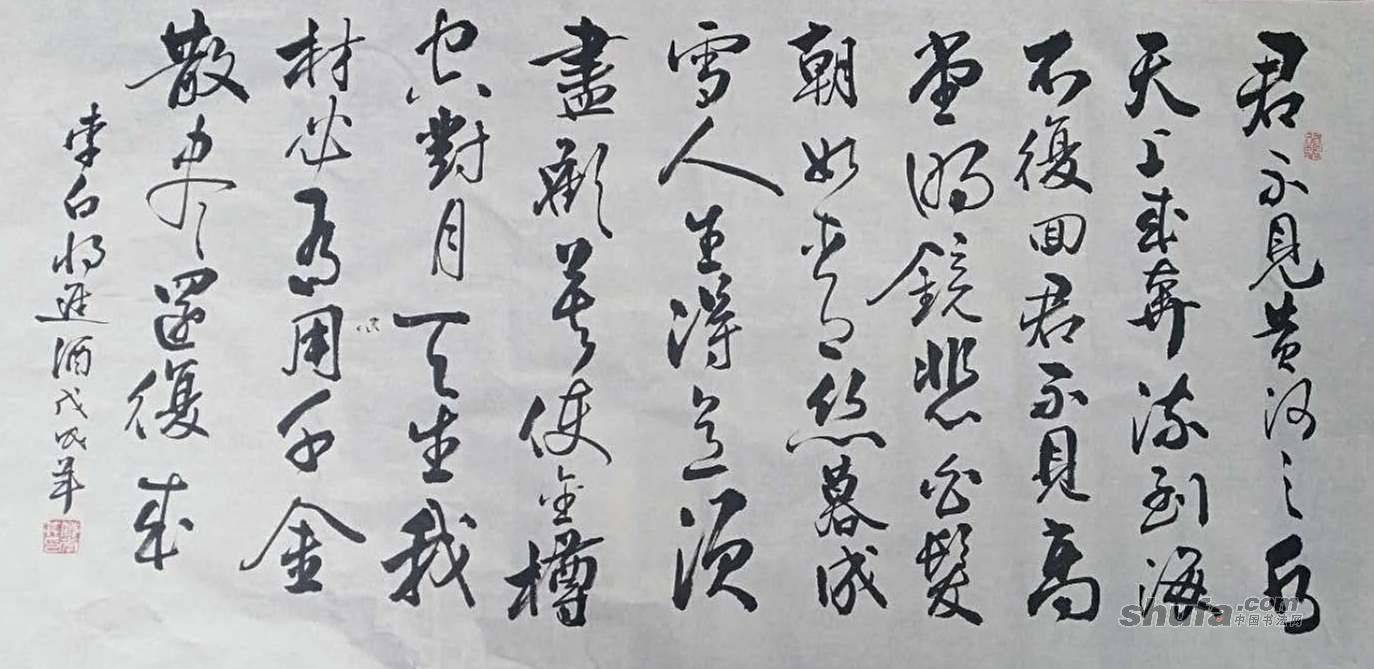 君不見黄河之水
天上來奔流到海
不復回君不見高
堂明鏡悲白髮
朝如青絲暮成
雪人生得意須
盡歡莫使金樽
空對月天生我
材必有用千金
散盡還復來
李白将進酒戊戌年
shufa.com
中国书法网